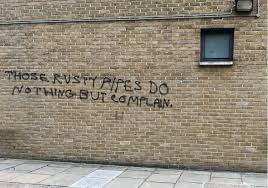 THOSE RUSTY PIPES DO
NOTHING BUT COMPLAIN.